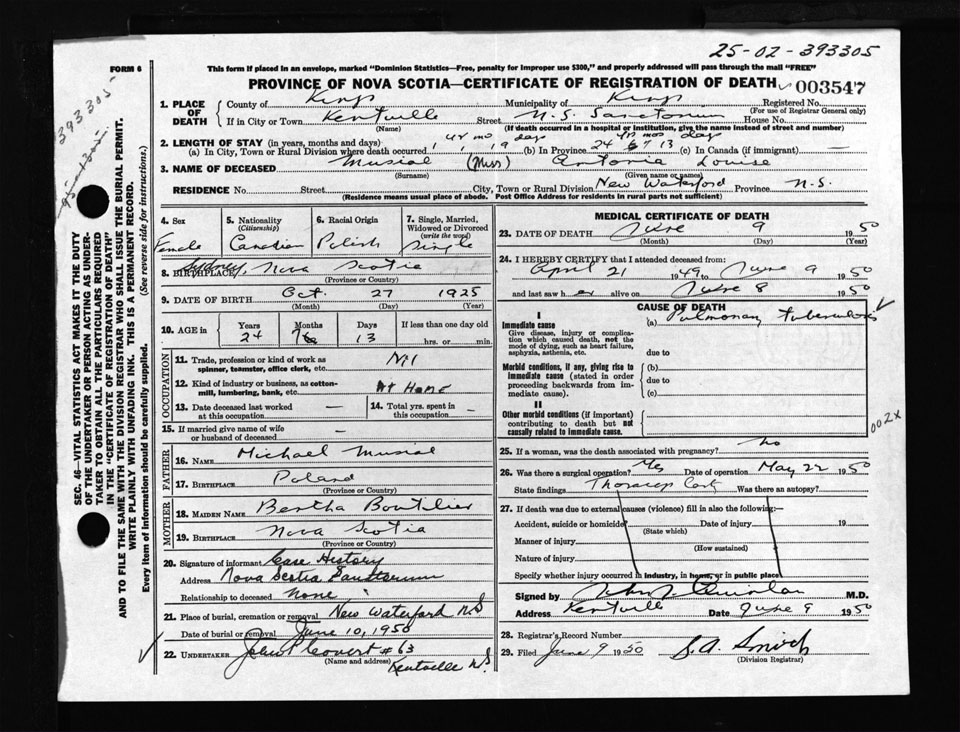 25-02-393305
FORM 6
This form if placed in an envelope, marked "Dominion Statistics—Free, penalty for improper use $300," and properly addressed will pass through the mail "FREE"
PROVINCE OF NOVA SCOTIA—CERTIFICATE OF REGISTRATION OF DEATH 003547
1. PLACE OF DEATH County of Kings Municipality of Kings Registered No.
(For use of Registrar General only)
If in City or Town Kentville Street N.S. Sanatorium House No.
(Name) (If death occurred in a hospital or institution, give the name instead of street and number)
2. LENGTH OF STAY (in years, months and days) yr mo days yrs mos days
(a) In City, Town or Rural Division where death occurred 1 1 19 (b) In Province 24 7 13 (c) In Canada (if immigrant) —
3. NAME OF DECEASED Musial (Miss) Antonia Louise
(Surname) (Given name or names)
RESIDENCE No. Street City, Town or Rural Division New Waterford Province N.S.
(Residence means usual place of abode. Post Office Address for residents in rural parts not sufficient)
4. Sex Female
5. Nationality (Citizenship) Canadian
6. Racial Origin Polish
7. Single, Married, Widowed or Divorced (write the word) Single
8. BIRTHPLACE Sydney, Nova Scotia
(Province or Country)
9. DATE OF BIRTH Oct. 27 1925
(Month) (Day) (Year)
10. AGE in Years Months Days If less than one day old
24 7 13 hrs. or min.
OCCUPATION
11. Trade, profession or kind of work as spinner, teamster, office clerk, etc. Nil
12. Kind of industry or business, as cotton-mill, lumbering, bank, etc. At Home
13. Date deceased last worked at this occupation —
14. Total yrs. spent in this occupation —
15. If married give name of wife or husband of deceased —
FATHER
16. NAME Michael Musial
17. BIRTHPLACE Poland
(Province or Country)
MOTHER
18. MAIDEN NAME Bertha Boutilier
19. BIRTHPLACE Nova Scotia
(Province or Country)
20. Signature of informant Case History
Address Nova Scotia Sanatorium
Relationship to deceased None
21. Place of burial, cremation or removal New Waterford NS
Date of burial or removal June 10, 1950
22. UNDERTAKER John P Covert #63
(Name and address) Kentville N.S.
MEDICAL CERTIFICATE OF DEATH
23. DATE OF DEATH June 9 1950
(Month) (Day) (Year)
24. I HEREBY CERTIFY that I attended deceased from:
April 21 1949 to June 9 1950
and last saw her alive on June 8 1950
CAUSE OF DEATH
I
Immediate cause (a) Pulmonary Tuberculosis
Give disease, injury or complication which caused death, not the mode of dying, such as heart failure, asphyxia, asthenia, etc.
due to
Morbid conditions, if any, giving rise to immediate cause (stated in order proceeding backwards from immediate cause).
(b)
due to
(c)
II
Other morbid conditions (if important) contributing to death but not causally related to immediate cause.
002X
25. If a woman, was the death associated with pregnancy? No
26. Was there a surgical operation? Yes Date of operation May 22 1950
State findings Was there an autopsy?
27. If death was due to external causes (violence) fill in also the following:—
Accident, suicide or homicide Date of injury 19
(State which)
Manner of injury
(How sustained)
Nature of injury
Specify whether injury occurred in industry, in home, or in public place
Signed by M.D.
Address Kentville Date June 9 1950
28. Registrar's Record Number
29. Filed June 9 1950
(Division Registrar)
393305
SEC. 46—VITAL STATISTICS ACT MAKES IT THE DUTY
OF THE UNDERTAKER OR PERSON ACTING AS UNDER-
TAKER TO OBTAIN ALL THE PARTICULARS REQUIRED
IN THE "CERTIFICATE OF REGISTRATION OF DEATH"
AND TO FILE THE SAME WITH THE DIVISION REGISTRAR WHO SHALL ISSUE THE BURIAL PERMIT.
WRITE PLAINLY WITH UNFADING INK. THIS IS A PERMANENT RECORD.
Every item of information should be carefully supplied. (See reverse side for instructions.)